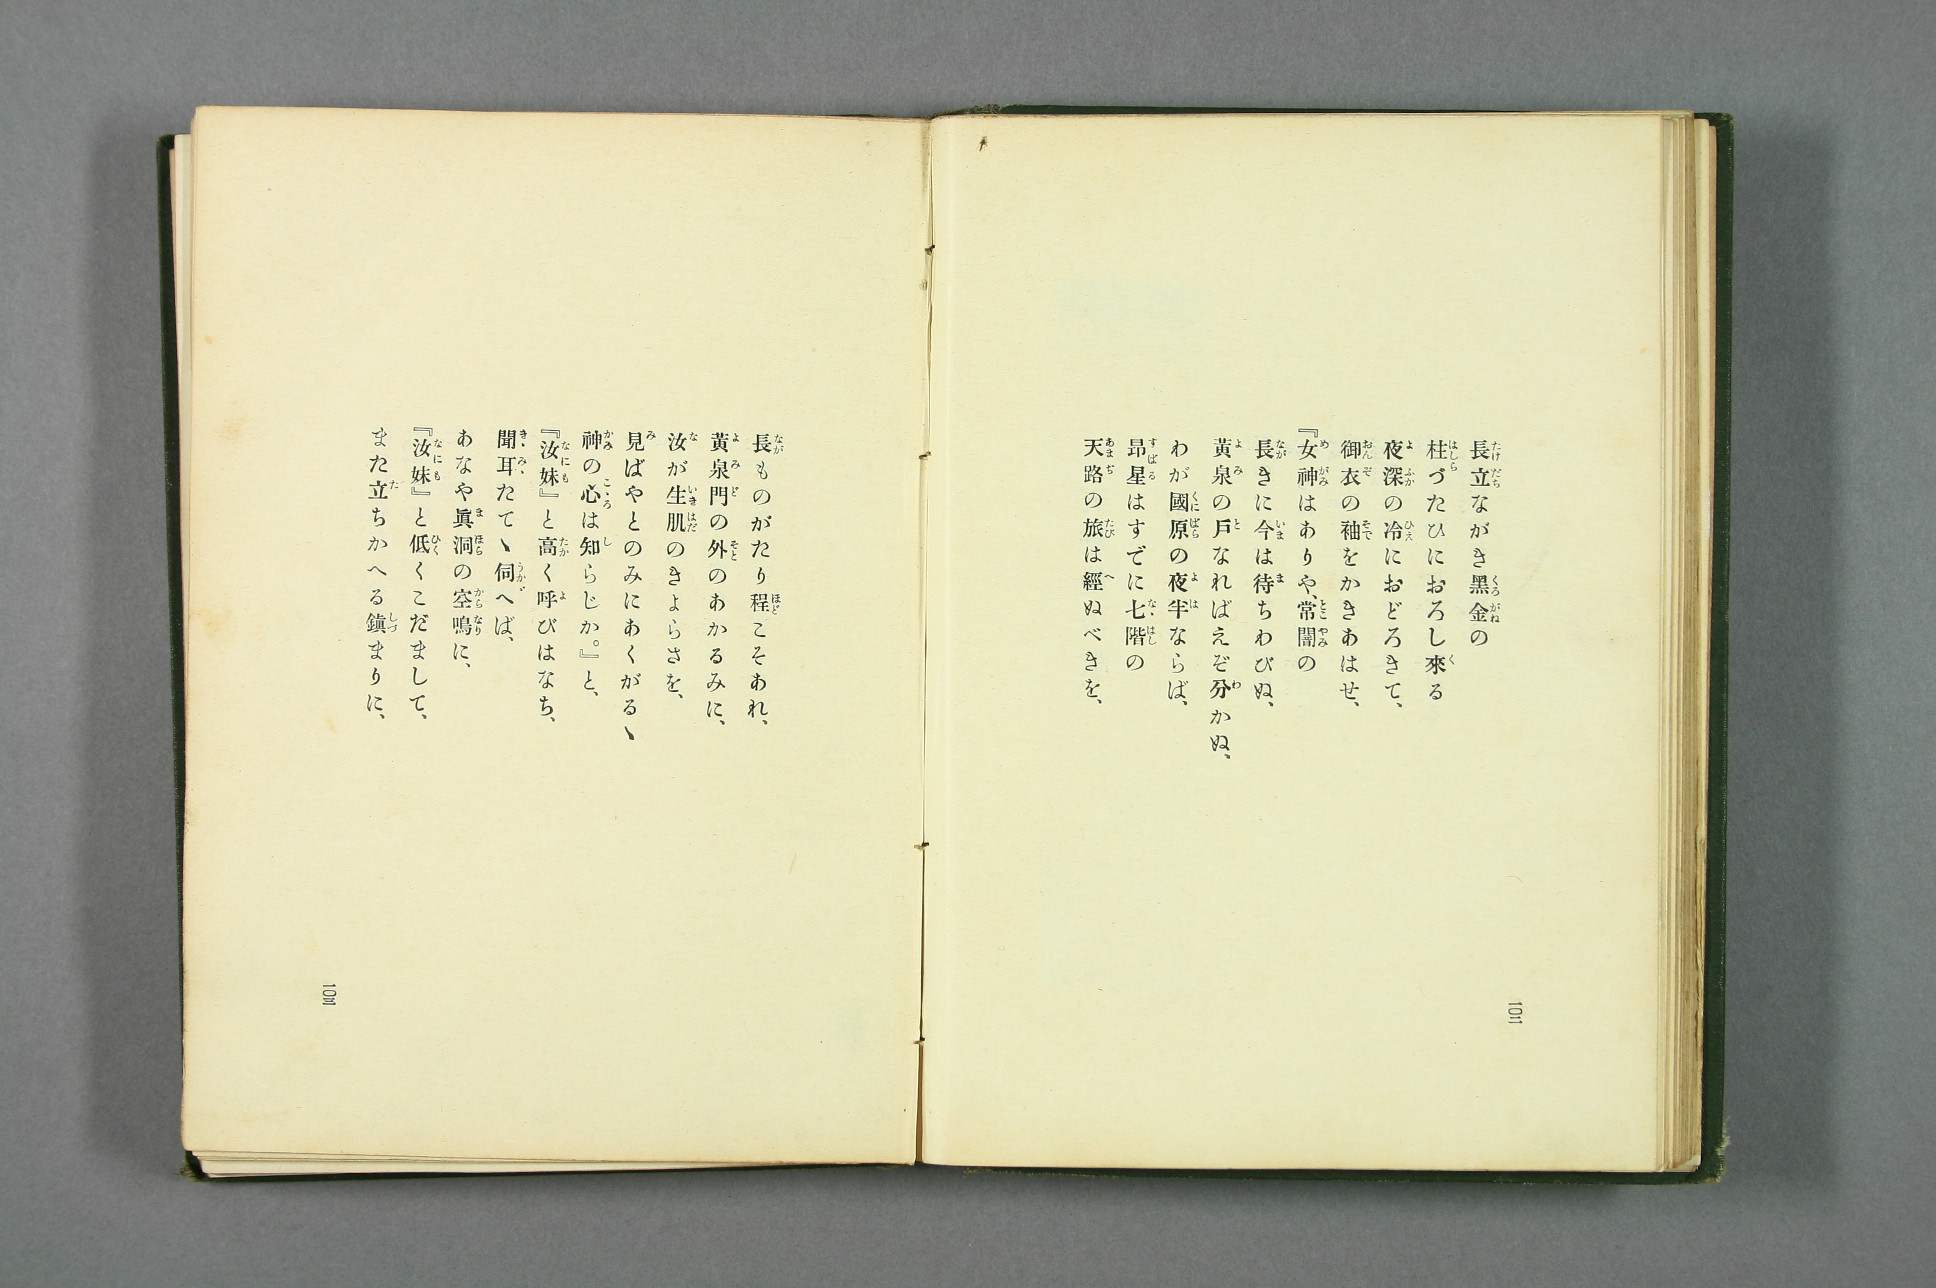 長立ながき黑金の
柱づたひにおろし來る
夜深の冷におどろきて、
御衣の袖をかきあはせ、
『女神はありや、常闇の
長きに今は待ちわびぬ、
黃泉の戶なればえぞ分かぬ、
わが國原の夜半ならば、
昴星はすでに七階の
天路の旅は經ぬべきを、
一〇二
長ものがたり程こそあれ、
黃泉門の外のあかるみに、
汝が生肌のきよらさを、
見ばやとのみにあくがるゝ
神の心は知らじか。』と、
『汝妹』と高く呼びはなち、
聞耳たてゝ伺へば、
あなや眞洞の空鳴に、
『汝妹』と低くこだまして、
また立ちかへる鎭まりに、
一〇三